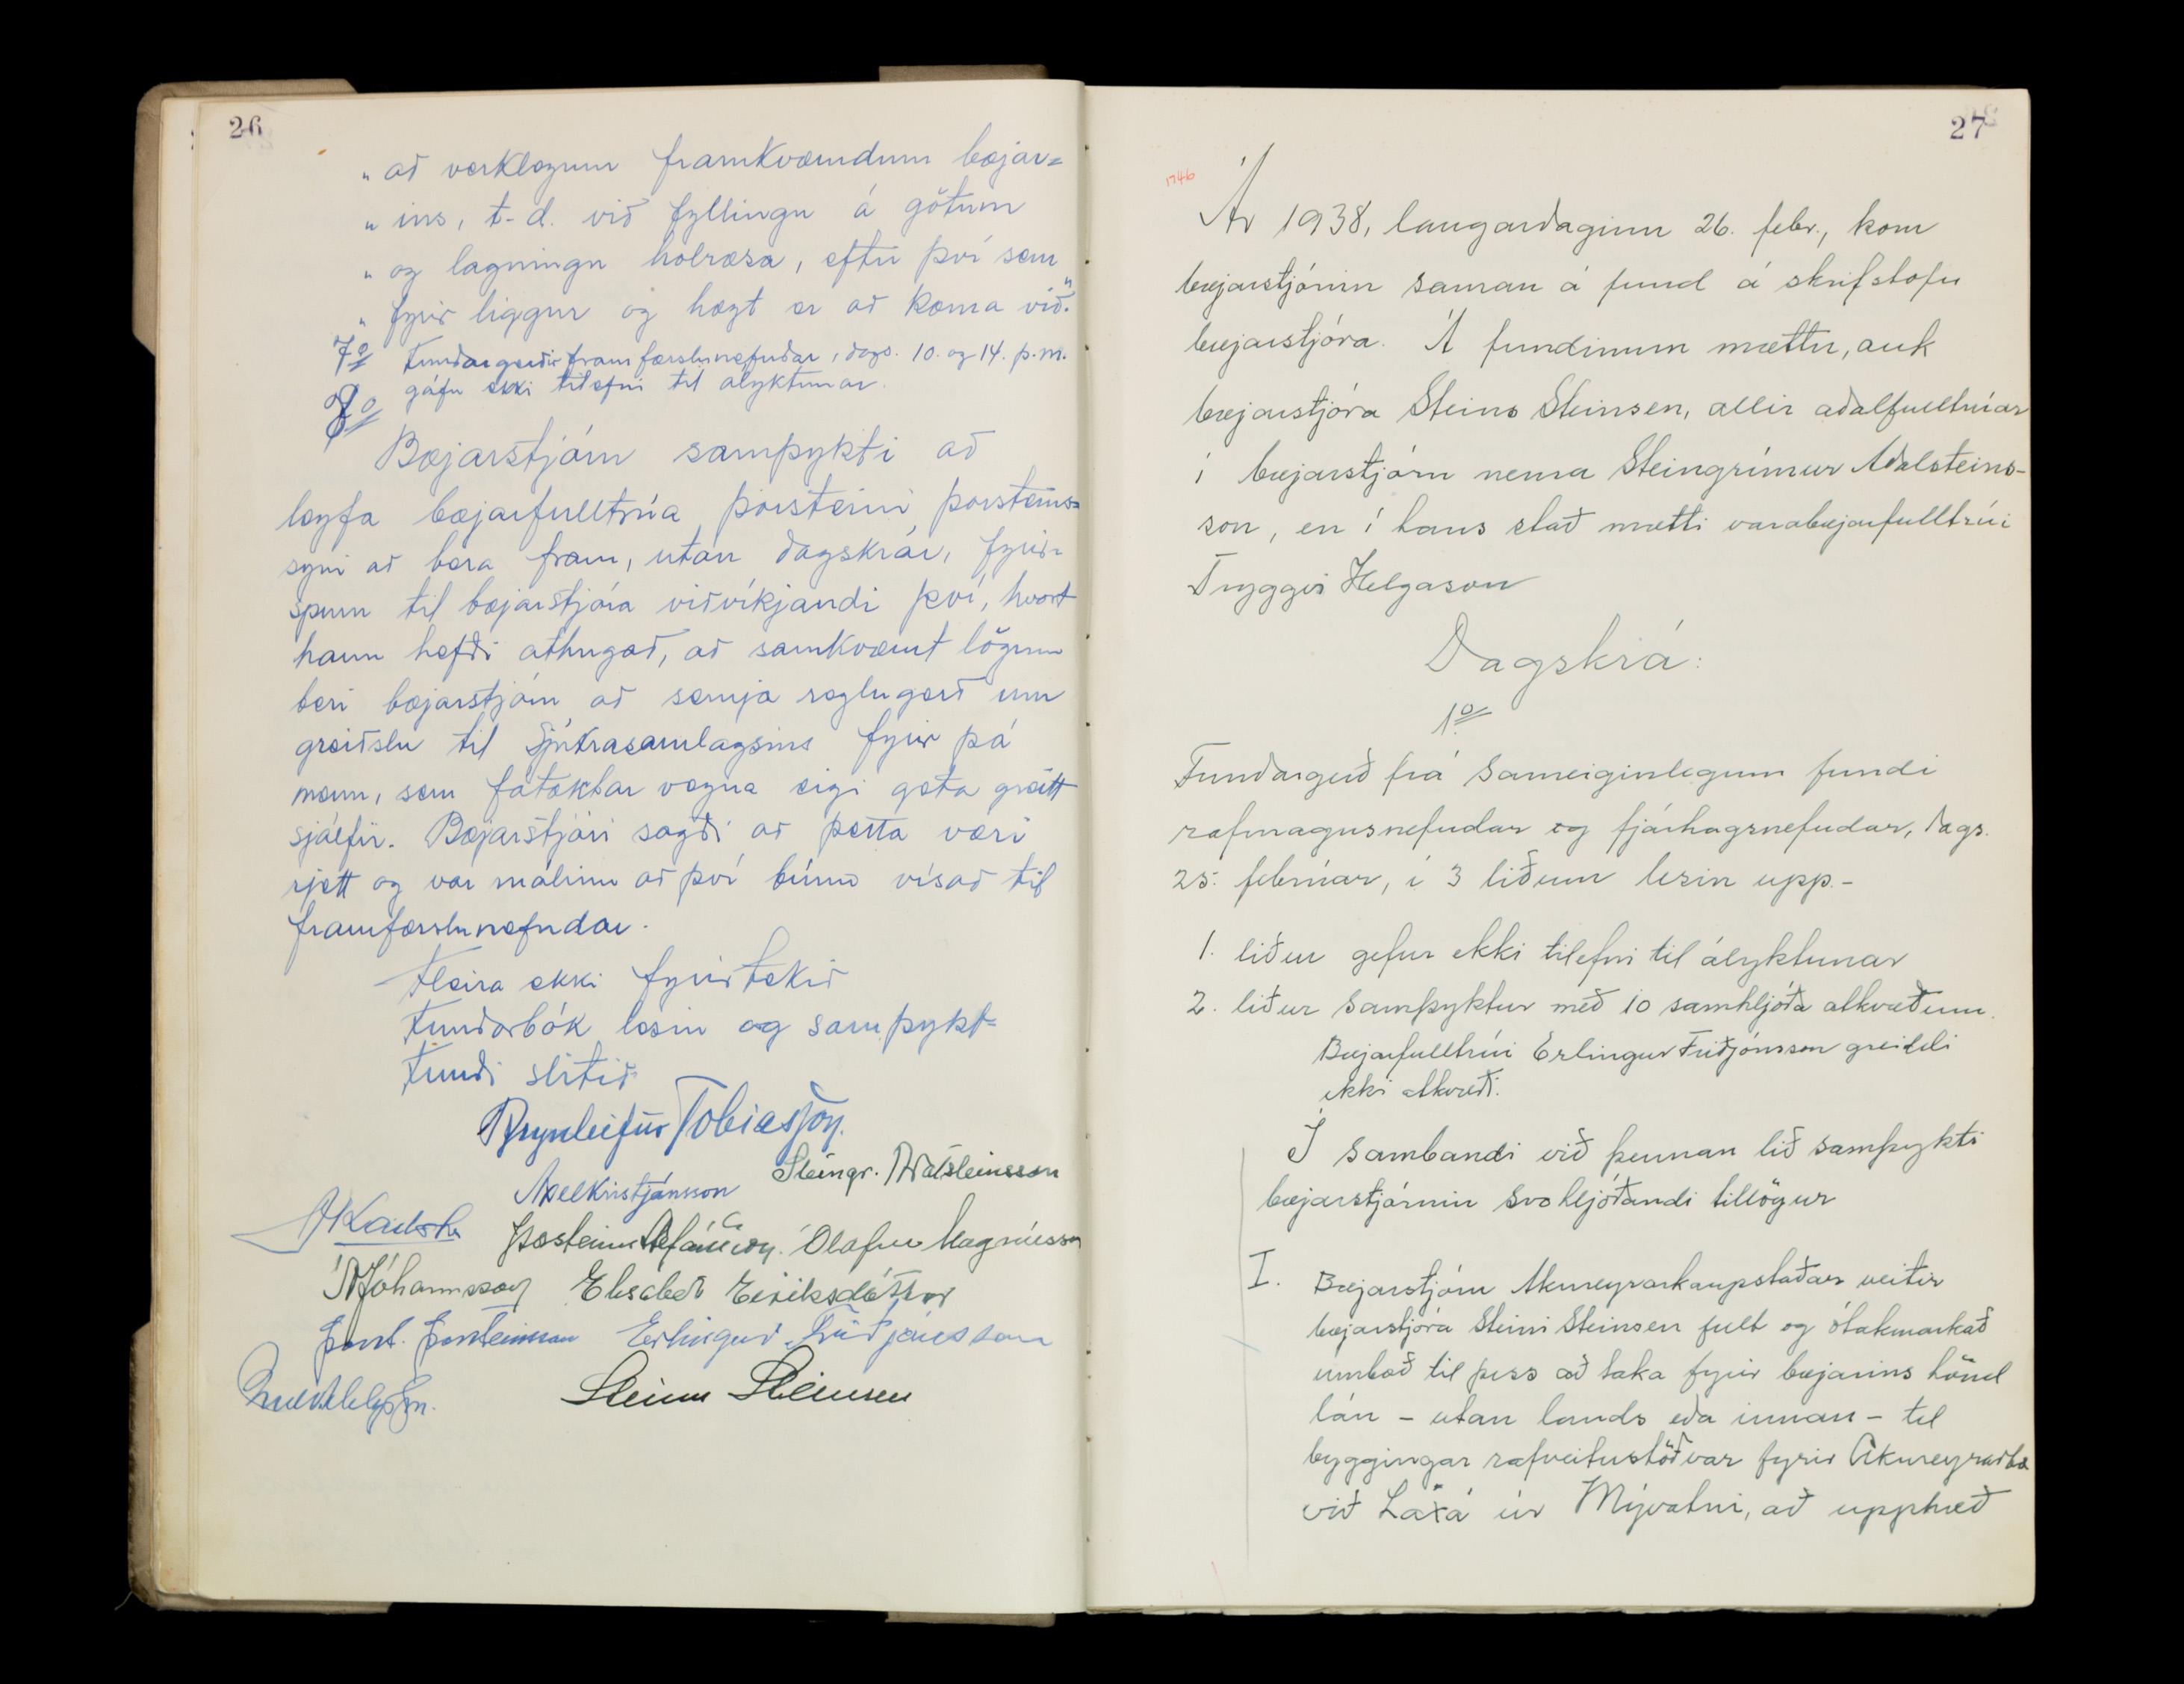 26
„ að verklegum framkvæmdum bæjar=
„ ins, t.d. við fyllingu á götum
„ og lagningu holræsa, eftir því sem
„ fyrir liggur og hægt er að koma við."
7o Fundargerðir framfærslunefndar, dags. 10. og 14. þ.m.
gáfu ekki tilefni til ályktunar.
8o
Bæjarstjórn samþykti að
leyfa bæjarfulltrúa Þorsteini Þorsteins=
syni að bera fram, utan dagskrár, fyrir-
spurn til bæjarstjóra viðvíkjandi því, hvort
hann hefði athugað, að samkvæmt lögum
beri bæjarstjórn að semja reglugerð um
greiðslu til Sjúkrasamlagsins fyrir þá
menn, sem fátæktar vegna eigi geta greitt
sjálfir. Bæjarstjóri sagði að þetta væri
rjett og var málinu að því búnu vísað til
framfærslunefndar.
Fleira ekki fyrirtekið
Fundarbók lesin og samþykt=
Fundi slitið
Brynleifur Tobiasson.
Axel Kristjánsson Steingr. Aðalsteinsson
Þorsteinn Stefánsson. Ólafur Magnússon
Jóhannsson Elisabet Eiríksdóttir
Þorst. Þorsteinsson Erlingur Friðjónsson
Steinn Steinsen
27
1746
Ár 1938, laugardaginn 26. febr., kom
bæjarstjórnin saman á fund á skrifstofu
bæjarstjóra. Á fundinum mættu, auk
bæjarstjóra Steins Steinsen, allir aðalfulltrúar
í bæjarstjórn nema Steingrímur Aðalsteins-
son, en í hans stað mætti varabæjarfulltrúi
Tryggvi Helgason
Dagskrá:
1o
Fundargerð frá sameiginlegum fundi
rafmagnsnefndar og fjárhagsnefndar, dags.
25. febrúar, í 3 liðum lesin upp.-
1. liður gefur ekki tilefni til ályktunar
2. liður samþyktur með 10 samhljóða atkvæðum.
Bæjarfulltrúi Erlingur Friðjónsson greiddi
ekki atkvæði.
Í sambandi við þennan lið samþykti
bæjarstjórnin svohljóðandi tillögur
I. Bæjarstjórn Akureyrarkaupstaðar veitir
bæjarstjóra Steini Steinsen fult og ótakmarkað
umboð til þess að taka fyrir bæjarins hönd
lán - utan lands eða innan - til
byggingar rafveitustöðvar fyrir Akureyrarbæ
við Laxá úr Mývatni, að upphæð